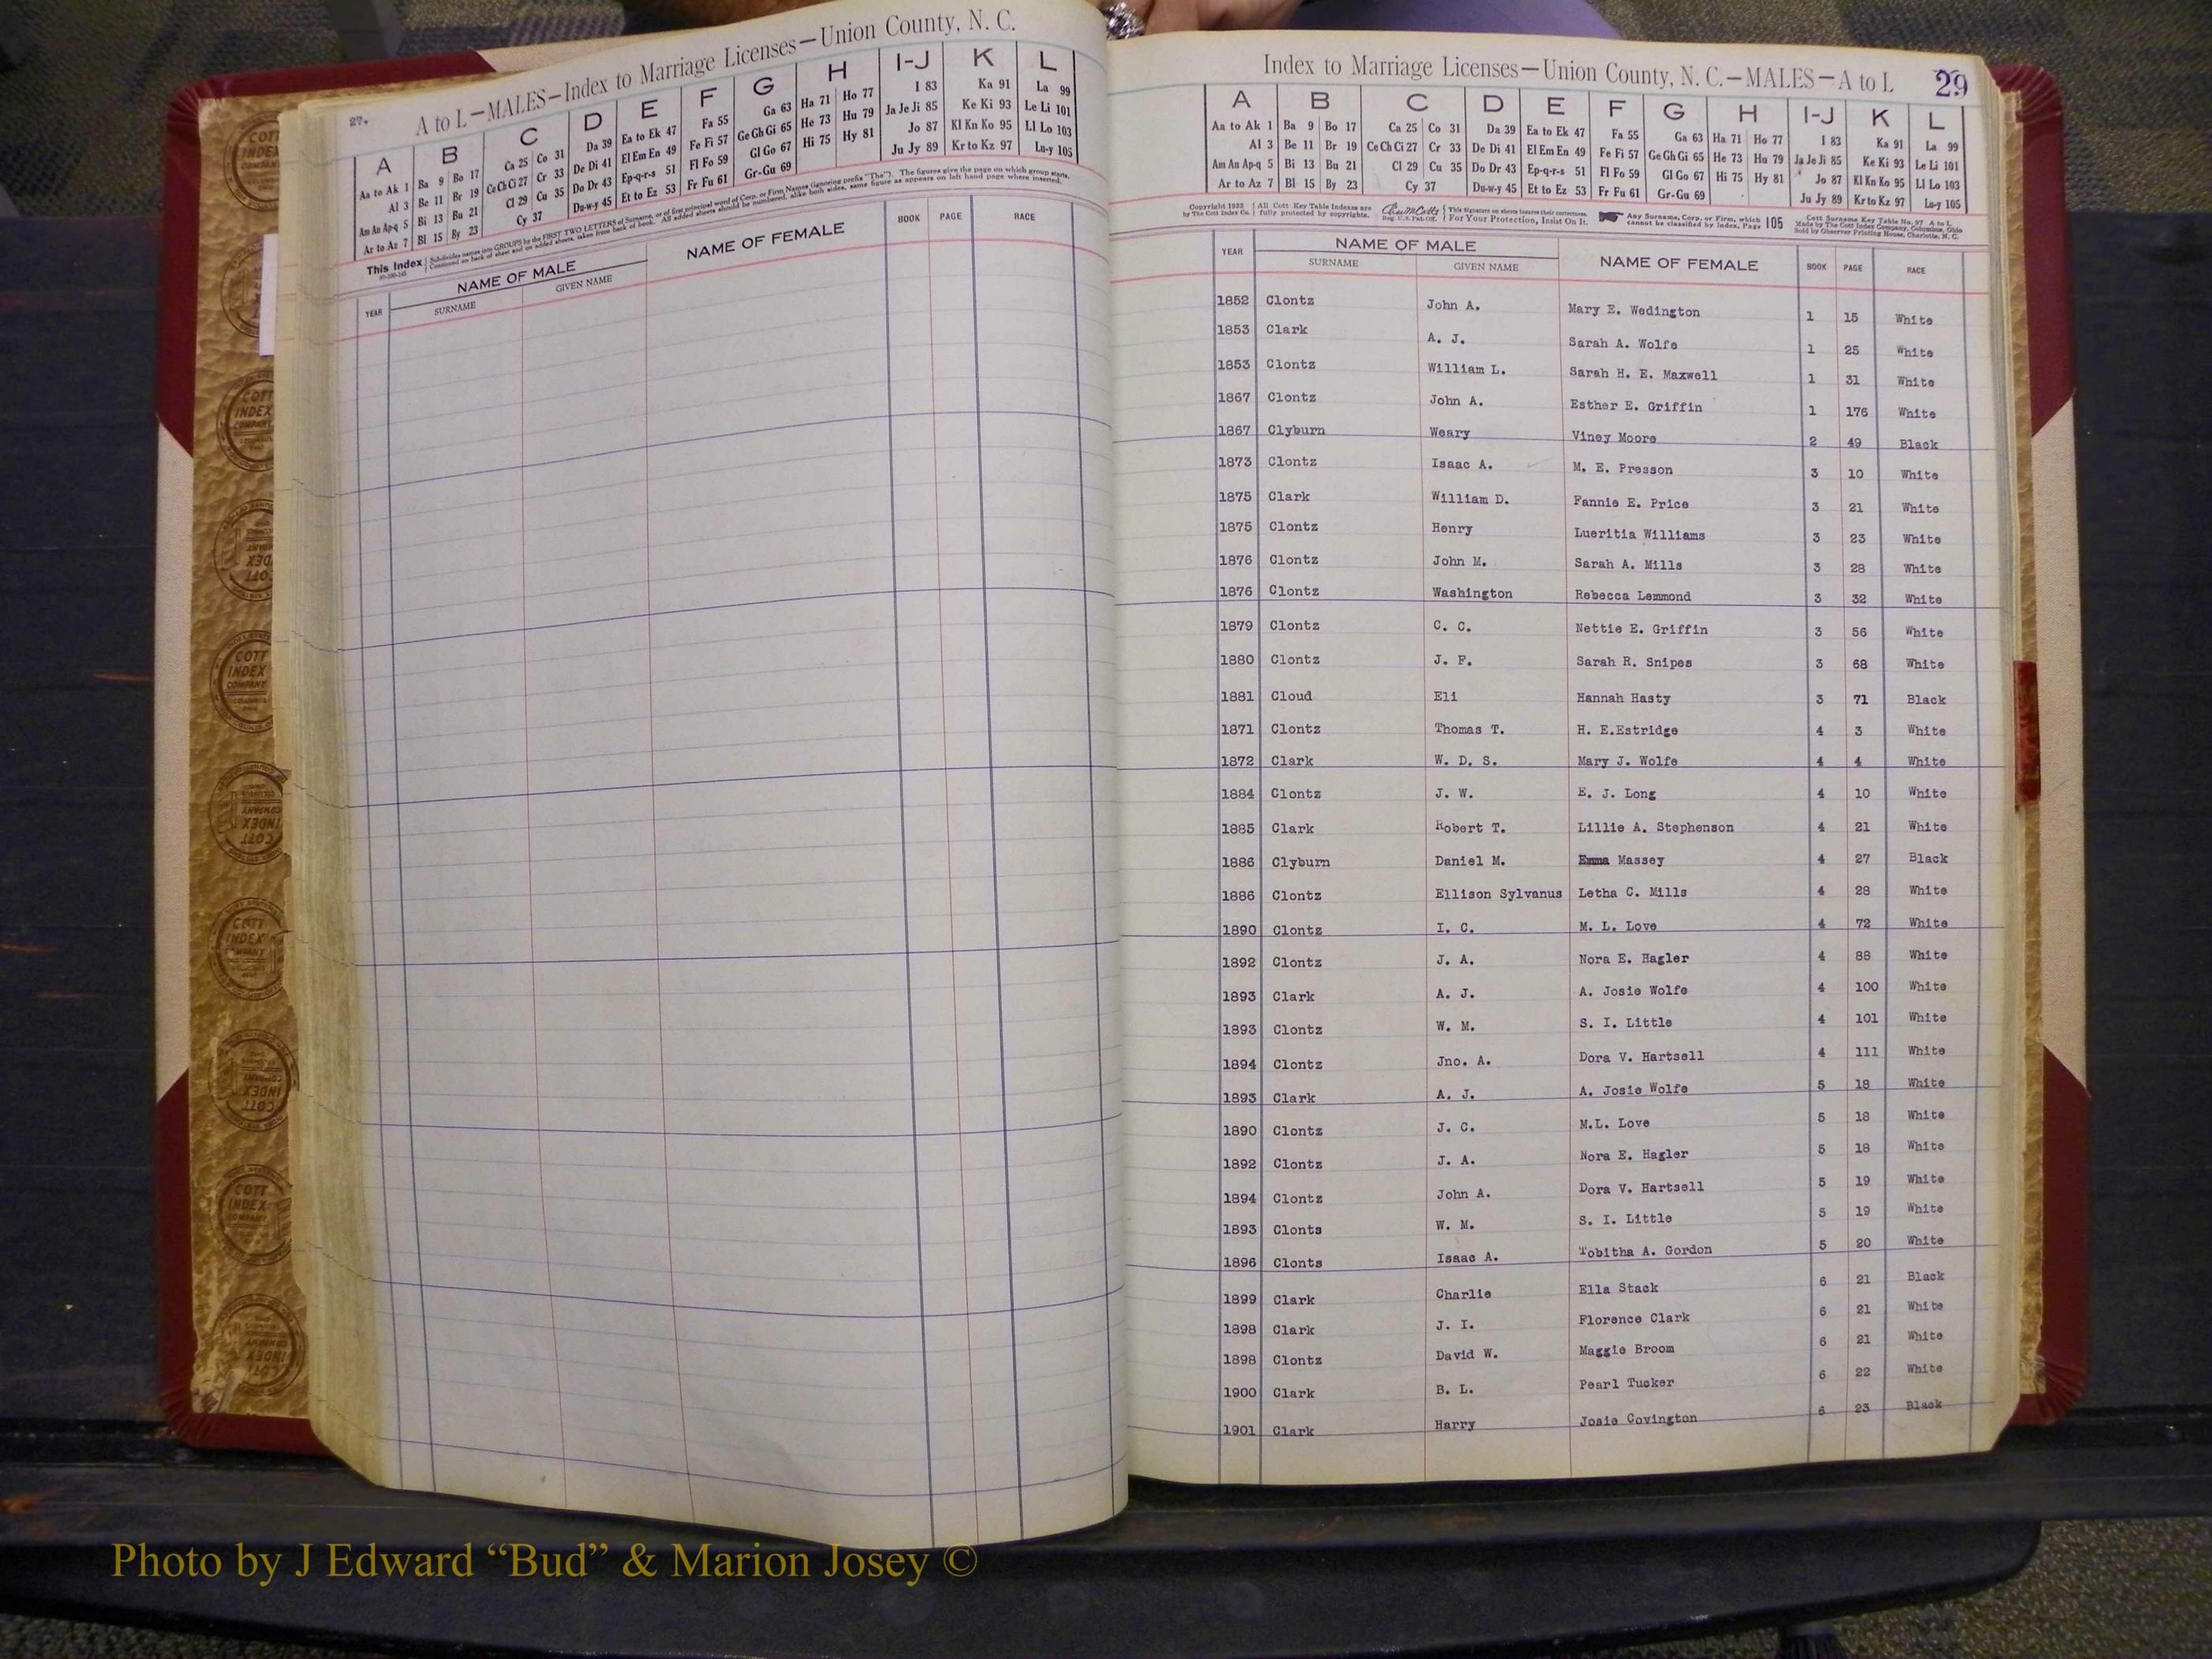 27.
A to L—MALES—Index to Marriage Licenses—Union County, N. C.
A B C D E F G H I-J K L
Aa to Ak 1 Ba 9 Bo 17 Ca 25 Co 31 Da 39 Ea to Ek 47 Fa 55 Ga 63 Ha 71 Ho 77 I 83 Ka 91 La 99
Al 3 Be 11 Br 19 Ce Ch Ci 27 Cr 33 De Di 41 El Em En 49 Fe Fi 57 Ge Gh Gi 65 He 73 Hu 79 Ja Je Ji 85 Ke Ki 93 Le Li 101
Am An Ap-q 5 Bi 13 Bu 21 Cl 29 Cu 35 Do Dr 43 Ep-q-r-s 51 Fl Fo 59 Gl Go 67 Hi 75 Hy 81 Jo 87 Kl Kn Ko 95 Ll Lo 103
Ar to Az 7 Bl 15 By 23 Cy 37 Du-w-y 45 Et to Ez 53 Fr Fu 61 Gr-Gu 69 Ju Jy 89 Kr to Kz 97 Lu-y 105
This Index Subdivides names into GROUPS by the FIRST TWO LETTERS of Surname, or of first principal word of Corp. or Firm Names (ignoring prefix "The"). The figures give the page on which group starts.
Continued on back of sheet and on added sheets, taken from back of book. All added sheets should be numbered, alike both sides, same figure as appears on left hand page where inserted.
YEAR NAME OF MALE NAME OF FEMALE BOOK PAGE RACE
SURNAME GIVEN NAME
Index to Marriage Licenses—Union County, N. C.—MALES—A to L 29
A B C D E F G H I-J K L
Aa to Ak 1 Ba 9 Bo 17 Ca 25 Co 31 Da 39 Ea to Ek 47 Fa 55 Ga 63 Ha 71 Ho 77 I 83 Ka 91 La 99
Al 3 Be 11 Br 19 Ce Ch Ci 27 Cr 33 De Di 41 El Em En 49 Fe Fi 57 Ge Gh Gi 65 He 73 Hu 79 Ja Je Ji 85 Ke Ki 93 Le Li 101
Am An Ap-q 5 Bi 13 Bu 21 Cl 29 Cu 35 Do Dr 43 Ep-q-r-s 51 Fl Fo 59 Gl Go 67 Hi 75 Hy 81 Jo 87 Kl Kn Ko 95 Ll Lo 103
Ar to Az 7 Bl 15 By 23 Cy 37 Du-w-y 45 Et to Ez 53 Fr Fu 61 Gr-Gu 69 Ju Jy 89 Kr to Kz 97 Lu-y 105
Copyright 1932 All Cott Key Table Indexes are This Signature on sheets insures their correctness. Any Surname, Corp. or Firm, which 105 Cott Surname Key Table No. 97 A to L
by The Cott Index Co. fully protected by copyrights. Reg. U.S. Pat. Off. For Your Protection, Insist On It. cannot be classified by index, Page Made by The Cott Index Company, Columbus, Ohio
Sold by Observer Printing House, Charlotte, N. C.
YEAR NAME OF MALE NAME OF FEMALE BOOK PAGE RACE
SURNAME GIVEN NAME
1852 Clontz John A. Mary E. Wedington 1 15 White
1853 Clark A. J. Sarah A. Wolfe 1 25 White
1853 Clontz William L. Sarah H. E. Maxwell 1 31 White
1867 Clontz John A. Esther E. Griffin 1 176 White
1867 Clyburn Weary Viney Moore 2 49 Black
1873 Clontz Isaac A. M. E. Presson 3 10 White
1875 Clark William D. Fannie E. Price 3 21 White
1875 Clontz Henry Lueritia Williams 3 23 White
1876 Clontz John M. Sarah A. Mills 3 28 White
1876 Clontz Washington Rebecca Lemmond 3 32 White
1879 Clontz C. C. Nettie E. Griffin 3 56 White
1880 Clontz J. F. Sarah R. Snipes 3 68 White
1881 Cloud Eli Hannah Hasty 3 71 Black
1871 Clontz Thomas T. H. E.Estridge 4 3 White
1872 Clark W. D. S. Mary J. Wolfe 4 4 White
1884 Clontz J. W. E. J. Long 4 10 White
1885 Clark Robert T. Lillie A. Stephenson 4 21 White
1886 Clyburn Daniel M. Emma Massey 4 27 Black
1886 Clontz Ellison Sylvanus Letha C. Mills 4 28 White
1890 Clontz I. C. M. L. Love 4 72 White
1892 Clontz J. A. Nora E. Hagler 4 88 White
1893 Clark A. J. A. Josie Wolfe 4 100 White
1893 Clontz W. M. S. I. Little 4 101 White
1894 Clontz Jno. A. Dora V. Hartsell 4 111 White
1893 Clark A. J. A. Josie Wolfe 5 18 White
1890 Clontz J. C. M.L. Love 5 18 White
1892 Clontz J. A. Nora E. Hagler 5 18 White
1894 Clontz John A. Dora V. Hartsell 5 19 White
1893 Clonts W. M. S. I. Little 5 19 White
1896 Clonts Isaac A. Tobitha A. Gordon 5 20 White
1899 Clark Charlie Ella Stack 6 21 Black
1898 Clark J. I. Florence Clark 6 21 White
1898 Clontz David W. Maggie Broom 6 21 White
1900 Clark B. L. Pearl Tucker 6 22 White
1901 Clark Harry Josie Covington 6 23 Black
Photo by J Edward “Bud” & Marion Josey ©